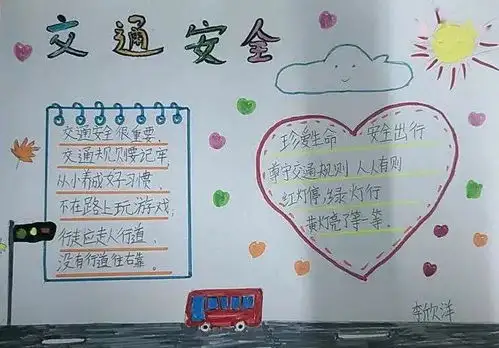 交通安全
交通安全很重要
交通规则要记牢
从小养成好习惯
不在路上玩游戏
行走应走人行道
没有行道往右靠
珍爱生命 安全出行
尊守交通规则 人人有则
红灯停,绿灯行
黄灯亮了等一等
李欣洋